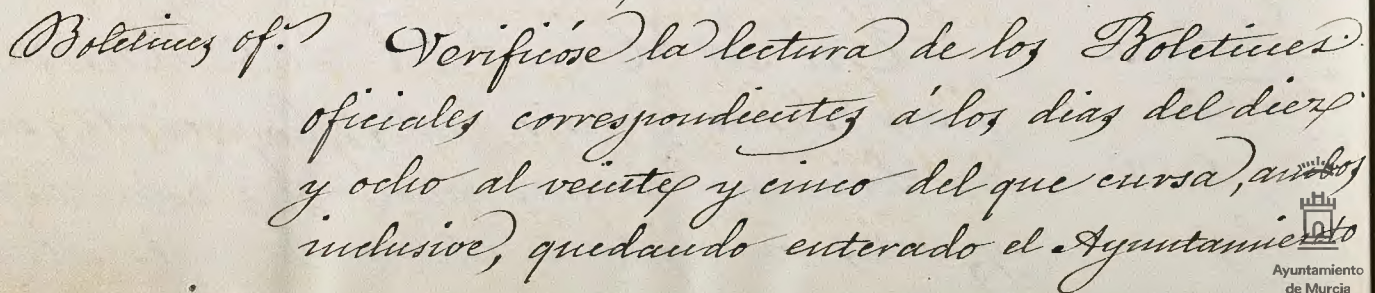 Boletines of.s Verificóse la lectura de los Boletines
oficiales correspondientes á los dias del diez
y ocho al veinte y cinco del que cursa, ambos
inclusive, quedando enterado el Ayuntamiento
Ayuntamiento
de Murcia